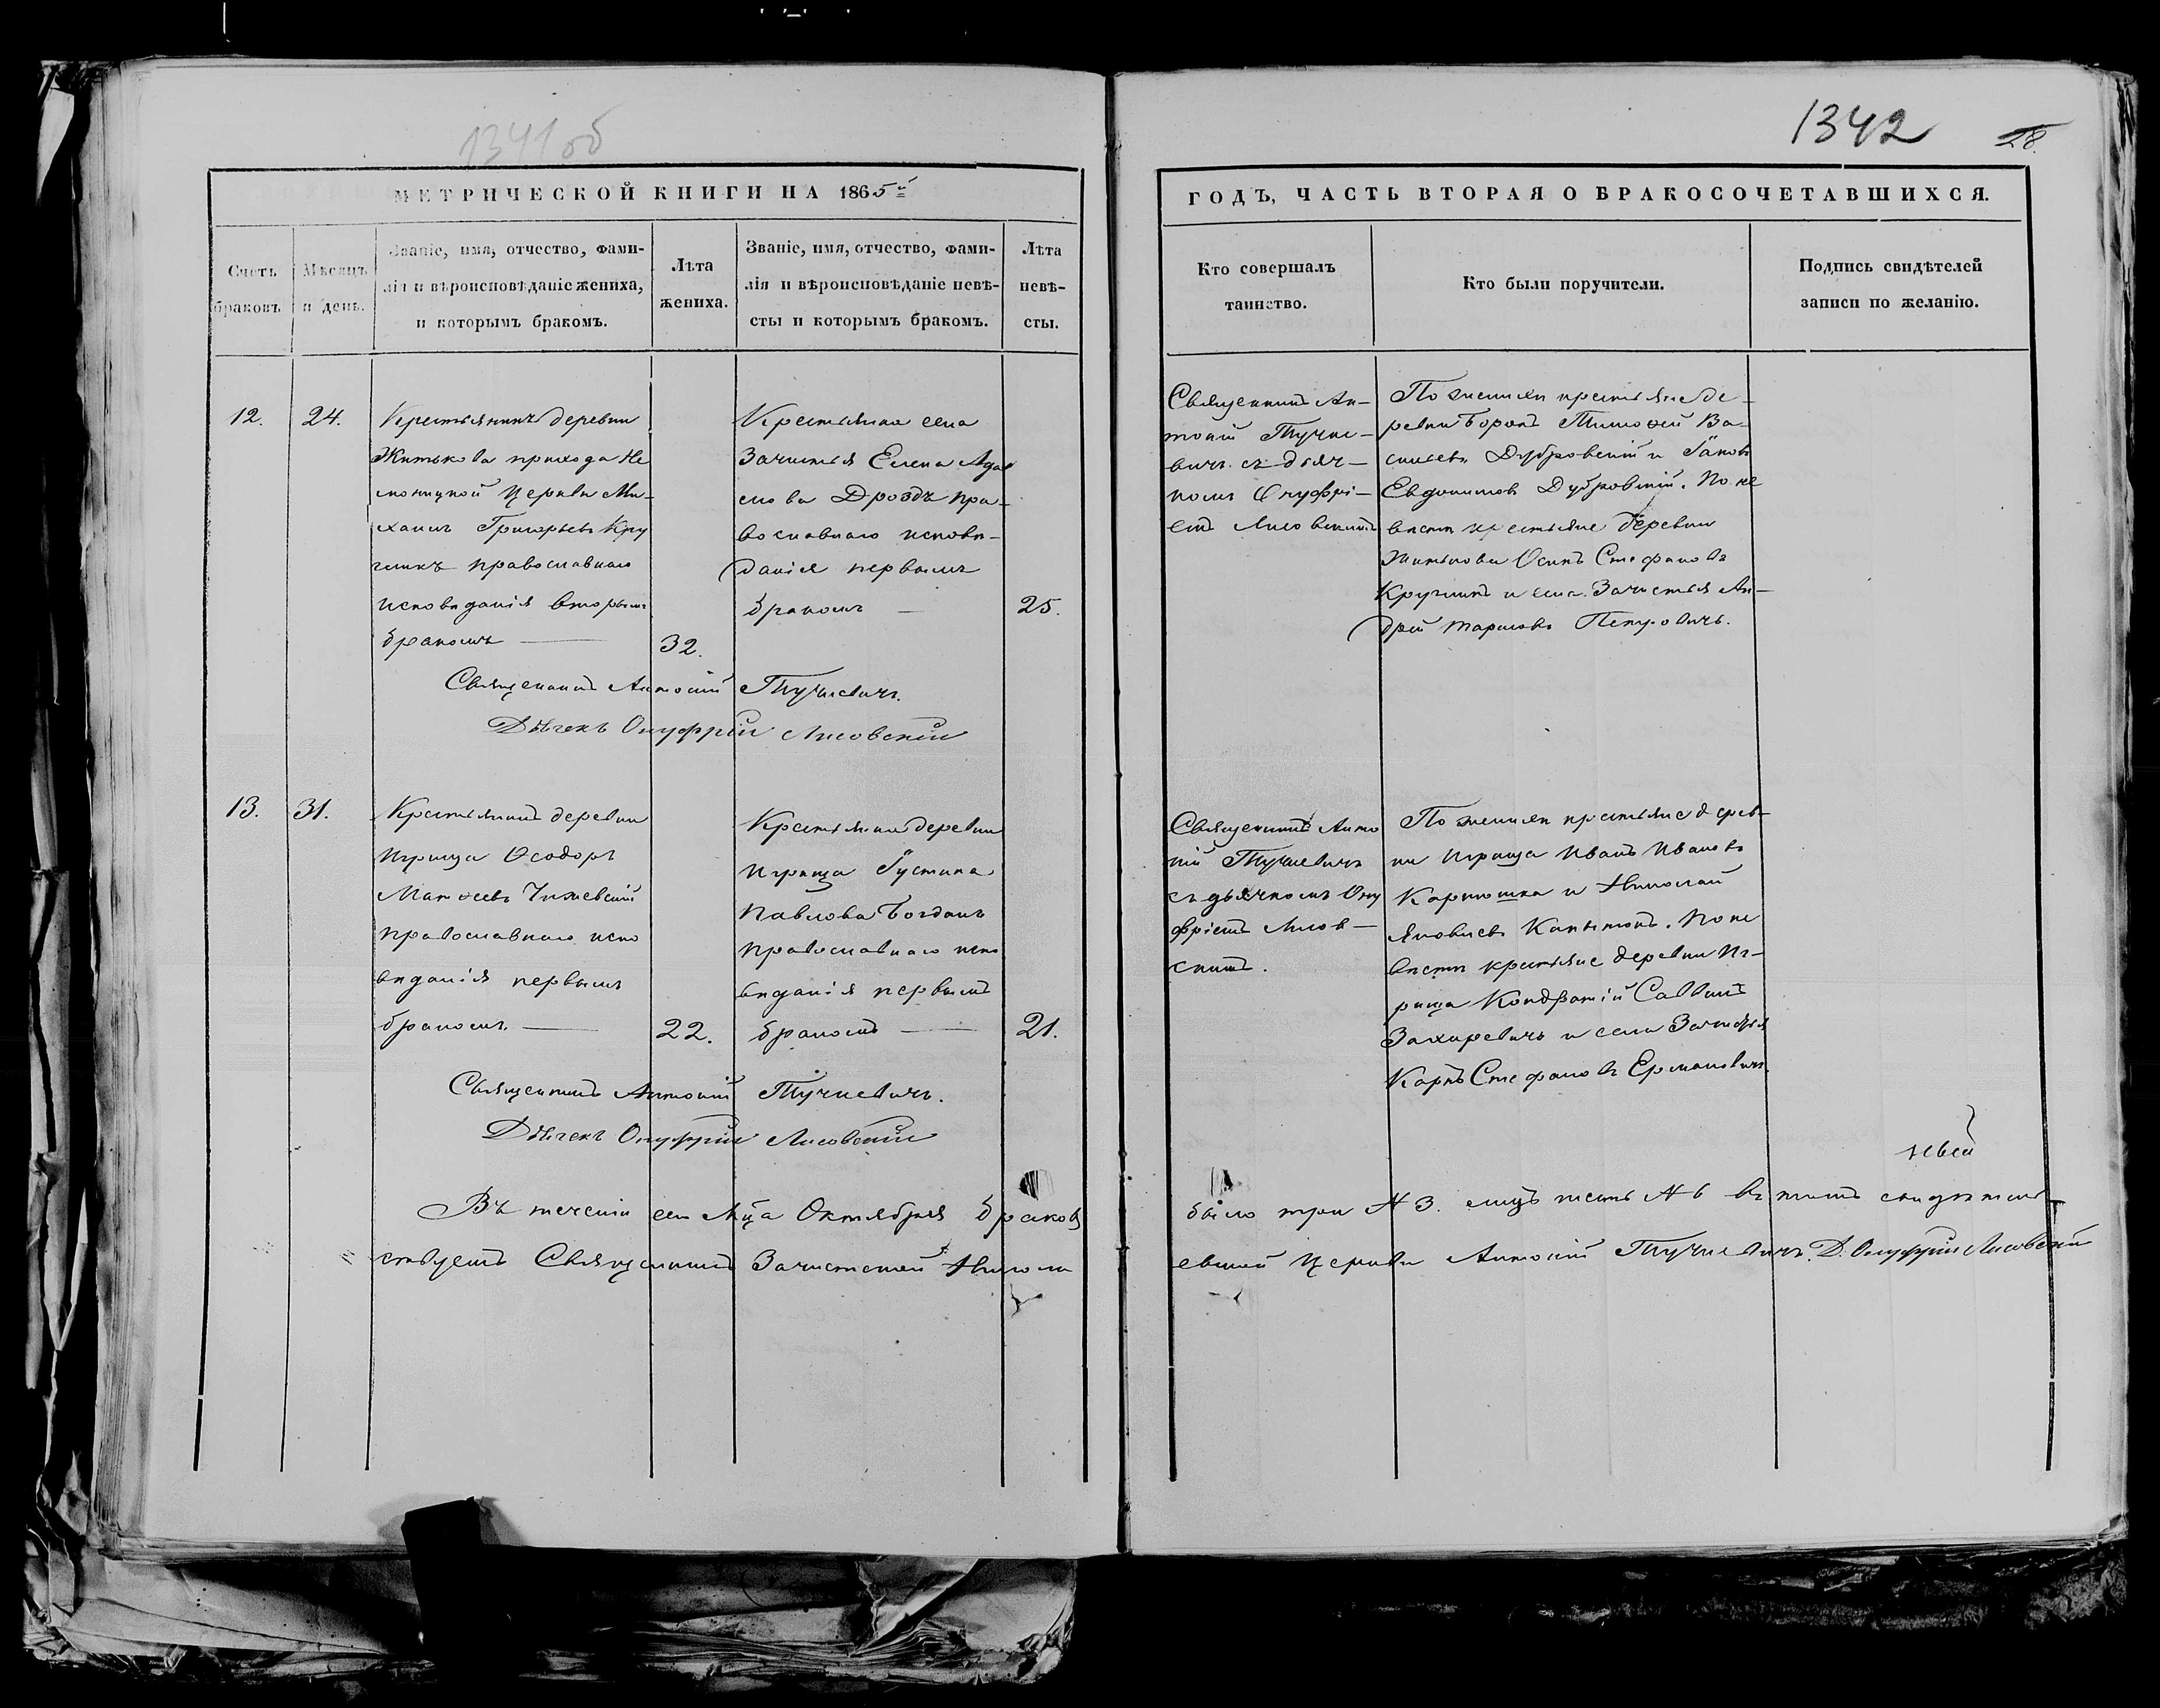 1341об
МЕТРИЧЕСКОЙ КНИГИ НА 1865й
Счетъ
браковъ
Мѣсяцъ
и день.
Званіе, имя, отчество, фами-
лія и вѣроисповѣданіе жениха,
и которымъ бракомъ.
Лѣта
жениха.
Званіе, имя, отчество, фами-
лія и вѣроисповѣданіе невѣ-
сты и которымъ бракомъ.
Лѣта
невѣ-
сты.
12.
24.
Крестьянинъ деревни
Житькова прихода Не
моницкой Церкви Ми-
хаилъ Григорьевъ Кру
гликъ православнаго
исповѣданія вторымъ
бракомъ —
32.
Крестьянка села
Зачистья Елена Ада
мова Дроздъ пра-
вославнаго исповѣ-
данія первымъ
бракомъ —
25.
Священникъ Антоній Тучкевичъ.
Дьячекъ Онуфрій Лисовскій
13.
31.
Крестьянинъ деревни
Игрища Ѳеодоръ
Матѳеевъ Чижевскій
православнаго испо
вѣданія первымъ
бракомъ. —
22.
Крестьянка деревни
Игрища Іустина
Павлова Богданъ
православнаго испо
вѣданія первымъ
бракомъ —
21.
Священникъ Антоній Тучкевичъ.
Дьячекъ Онуфрій Лисовскій
Въ теченіи сего Мца Октября браковъ
ствуетъ Священникъ Зачистской Никола
1342
28.
ГОДЪ, ЧАСТЬ ВТОРАЯ О БРАКОСОЧЕТАВШИХСЯ.
Кто совершалъ
таинство.
Кто были поручители.
Подпись свидѣтелей
записи по желанію.
Священникъ Ан-
тоній Тучке-
вичъ съ дьяч-
комъ Онуфрі-
емъ Лисовскимъ
По женихѣ крестьяне де-
ревни Борокъ Тимоѳей Ва-
сильевъ Дубровскій и Іаковъ
Евдокимовъ Дубровскій. По не
вѣстѣ крестьяне деревни
Житькова Осипъ Стефановъ
Кругликъ и села Зачистья Ан-
дрей Петровичъ.
Священникъ Анто
ній Тучкевичъ
съ дьячкомъ Ону
фріемъ Лисов-
скимъ.
По женихѣ крестьяне дерев-
ни Игрища Иванъ Ивановъ
Картошка и Николай
Яковлевъ Капитонъ. По не
вѣстѣ крестьяне деревни Иг-
рища Кондратій Саввинъ
Захаревичъ и села Зачистья
Карпъ Стефановъ Ермаковичъ.
было три № 3. лицъ шесть № 6 въ томъ свидѣтель
евской Церкви Антоній Тучкевичъ. Д. Онуфрій Лисовскій